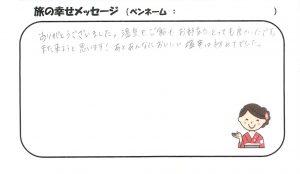 旅の幸せメッセージ（ペンネーム： ）
ありがとうございました。温泉もご飯もお部屋もとっても良かったです。
また来ようと思います！あとあんなにおいしい塩辛は初めてでした。